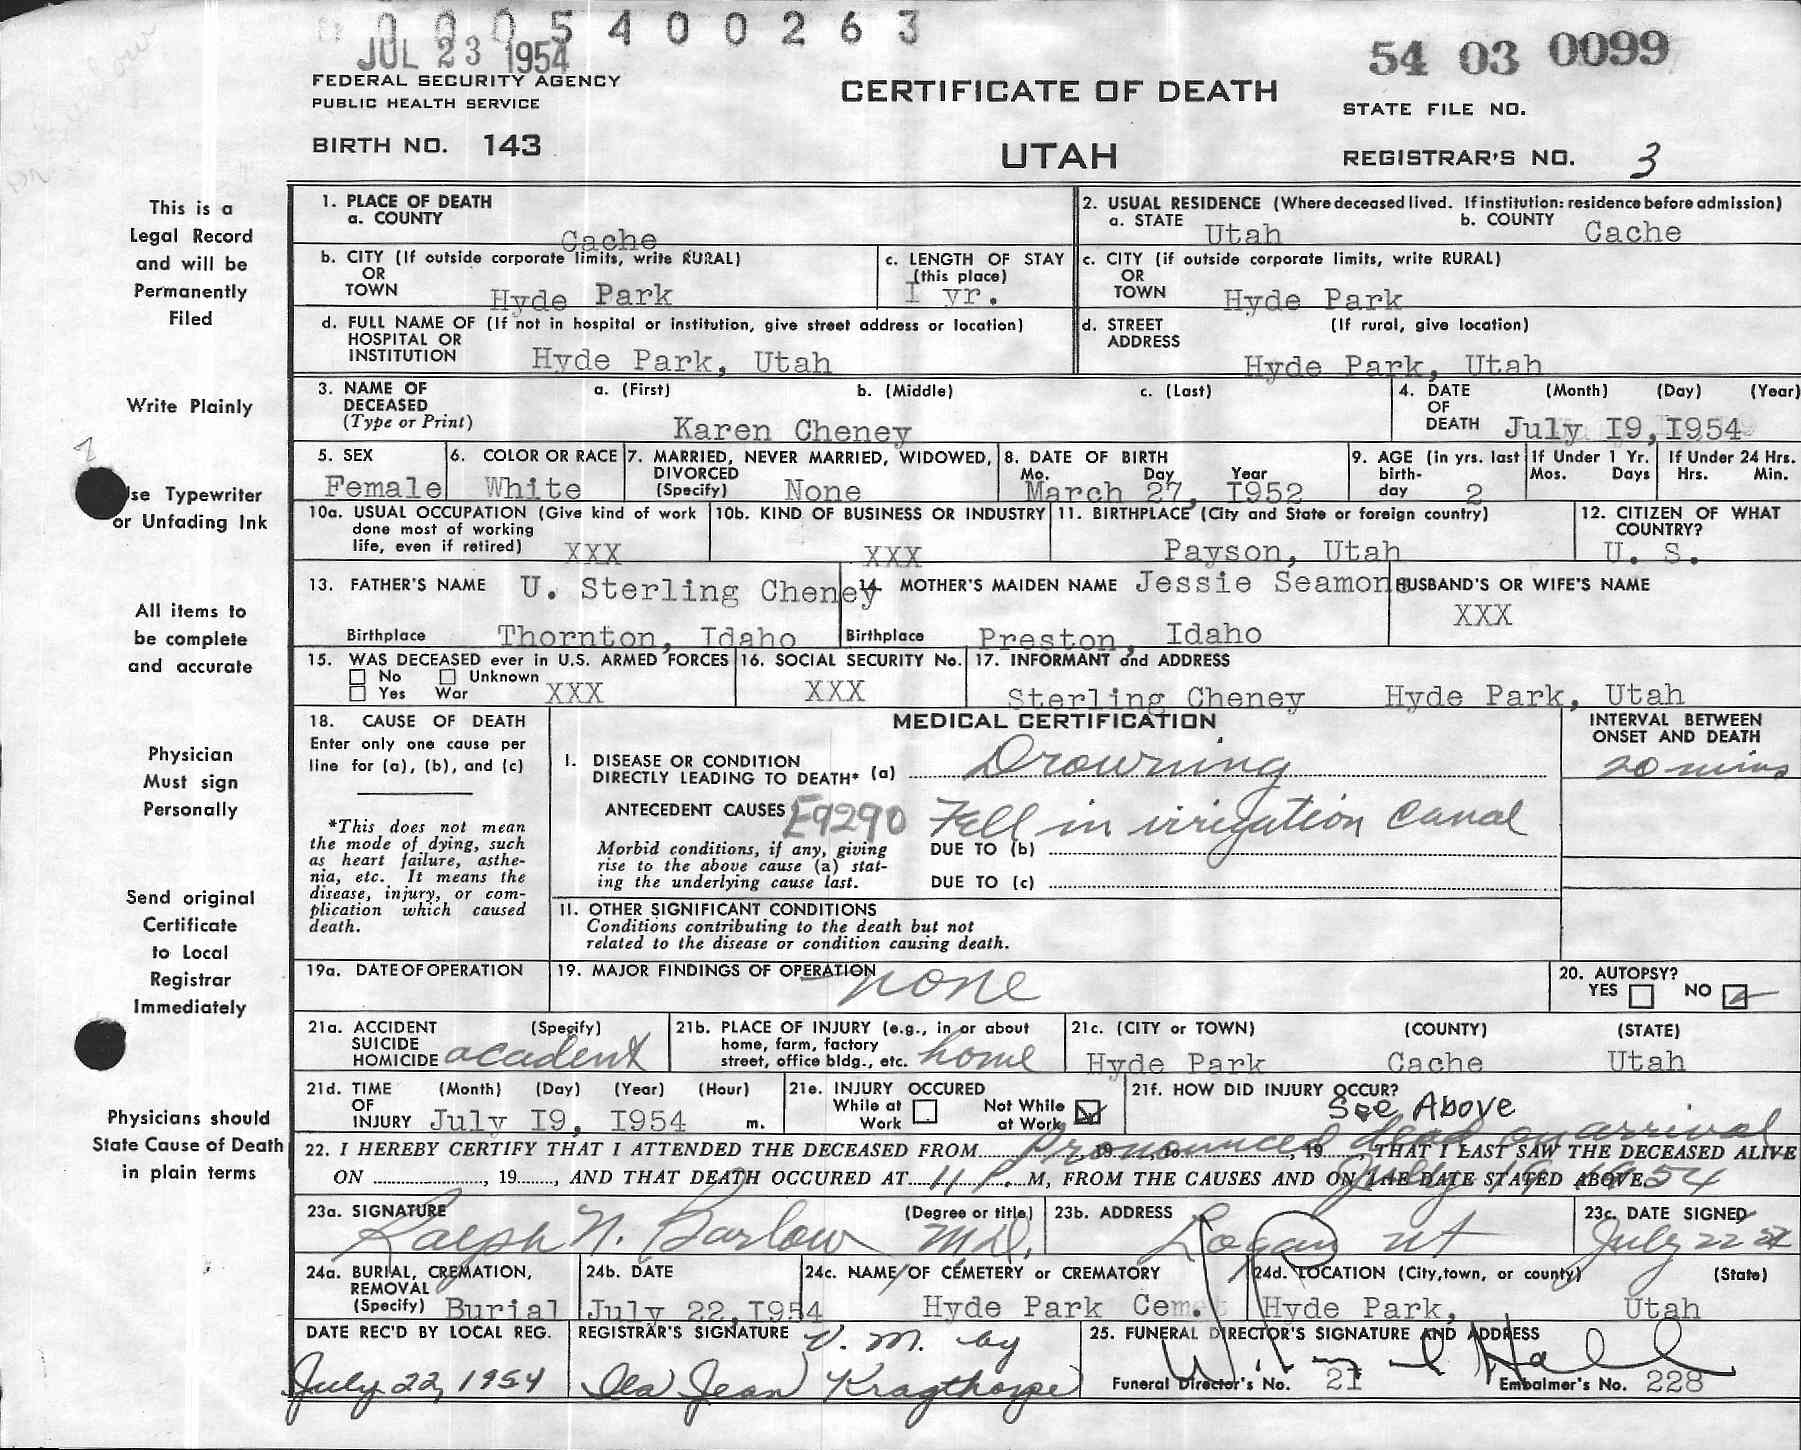 0005400263
JUL 23 1954
54 03 0099
FEDERAL SECURITY AGENCY
PUBLIC HEALTH SERVICE
CERTIFICATE OF DEATH
STATE FILE NO.
BIRTH NO. 143
UTAH
REGISTRAR'S NO. 3
This is a
Legal Record
and will be
Permanently
Filed
Write Plainly
Use Typewriter
or Unfading Ink
All items to
be complete
and accurate
Physician
Must sign
Personally
Send original
Certificate
to Local
Registrar
Immediately
Physicians should
State Cause of Death
in plain terms
1. PLACE OF DEATH
a. COUNTY
Cache
2. USUAL RESIDENCE (Where deceased lived. If institution: residence before admission)
a. STATE Utah b. COUNTY Cache
b. CITY (If outside corporate limits, write RURAL)
OR
TOWN Hyde Park
c. LENGTH OF STAY
(this place)
I yr.
c. CITY (if outside corporate limits, write RURAL)
OR
TOWN Hyde Park
d. FULL NAME OF (If not in hospital or institution, give street address or location)
HOSPITAL OR
INSTITUTION Hyde Park, Utah
d. STREET (If rural, give location)
ADDRESS
Hyde Park, Utah
3. NAME OF a. (First) b. (Middle) c. (Last)
DECEASED
(Type or Print) Karen Cheney
4. DATE (Month) (Day) (Year)
OF
DEATH July I9, I954
5. SEX
Female
6. COLOR OR RACE
White
7. MARRIED, NEVER MARRIED, WIDOWED,
DIVORCED
(Specify) None
8. DATE OF BIRTH
Mo. Day Year
March 27, I952
9. AGE (in yrs. last
birth-
day 2
If Under 1 Yr.
Mos. Days
If Under 24 Hrs.
Hrs. Min.
10a. USUAL OCCUPATION (Give kind of work
done most of working
life, even if retired) XXX
10b. KIND OF BUSINESS OR INDUSTRY
XXX
11. BIRTHPLACE (City and State or foreign country)
Payson, Utah
12. CITIZEN OF WHAT
COUNTRY?
U. S.
13. FATHER'S NAME U. Sterling Cheney
Birthplace Thornton, Idaho
14. MOTHER'S MAIDEN NAME Jessie Seamons
Birthplace Preston, Idaho
HUSBAND'S OR WIFE'S NAME
XXX
15. WAS DECEASED ever in U.S. ARMED FORCES
No Unknown
Yes War XXX
16. SOCIAL SECURITY No.
XXX
17. INFORMANT and ADDRESS
Sterling Cheney Hyde Park, Utah
18. CAUSE OF DEATH
Enter only one cause per
line for (a), (b), and (c)
*This does not mean
the mode of dying, such
as heart failure, asthe-
nia, etc. It means the
disease, injury, or com-
plication which caused
death.
MEDICAL CERTIFICATION
INTERVAL BETWEEN
ONSET AND DEATH
I. DISEASE OR CONDITION
DIRECTLY LEADING TO DEATH* (a) Drowning
20 mins
ANTECEDENT CAUSES E9290 Fell in irrigation Canal
Morbid conditions, if any, giving
rise to the above cause (a) stat-
ing the underlying cause last.
DUE TO (b)
DUE TO (c)
II. OTHER SIGNIFICANT CONDITIONS
Conditions contributing to the death but not
related to the disease or condition causing death.
19a. DATE OF OPERATION
19. MAJOR FINDINGS OF OPERATION
none
20. AUTOPSY?
YES NO
21a. ACCIDENT (Specify)
SUICIDE
HOMICIDE accident
21b. PLACE OF INJURY (e.g., in or about
home, farm, factory
street, office bldg., etc. home
21c. (CITY or TOWN) (COUNTY) (STATE)
Hyde Park Cache Utah
21d. TIME (Month) (Day) (Year) (Hour)
OF
INJURY July I9, I954 m.
21e. INJURY OCCURED
While at Not While
Work at Work
21f. HOW DID INJURY OCCUR?
See Above
pronounced dead on arrival
22. I HEREBY CERTIFY THAT I ATTENDED THE DECEASED FROM , 19 , to , 19 , THAT I LAST SAW THE DECEASED ALIVE
ON , 19 , AND THAT DEATH OCCURED AT 11 P M, FROM THE CAUSES AND ON THE DATE STATED ABOVE.
July 19 1954
23a. SIGNATURE (Degree or title)
Ralph N. Barlow M.D.
23b. ADDRESS
Logan ut
23c. DATE SIGNED
July 22
24a. BURIAL, CREMATION,
REMOVAL
(Specify) Burial
24b. DATE
July 22, I954
24c. NAME OF CEMETERY or CREMATORY
Hyde Park Cem.
24d. LOCATION (City, town, or county) (State)
Hyde Park, Utah
DATE REC'D BY LOCAL REG.
July 22, 1954
REGISTRAR'S SIGNATURE V. M. by
Ila Jean Kragthorpe
25. FUNERAL DIRECTOR'S SIGNATURE AND ADDRESS
Hall
Funeral Director's No. 21 Embalmer's No. 228